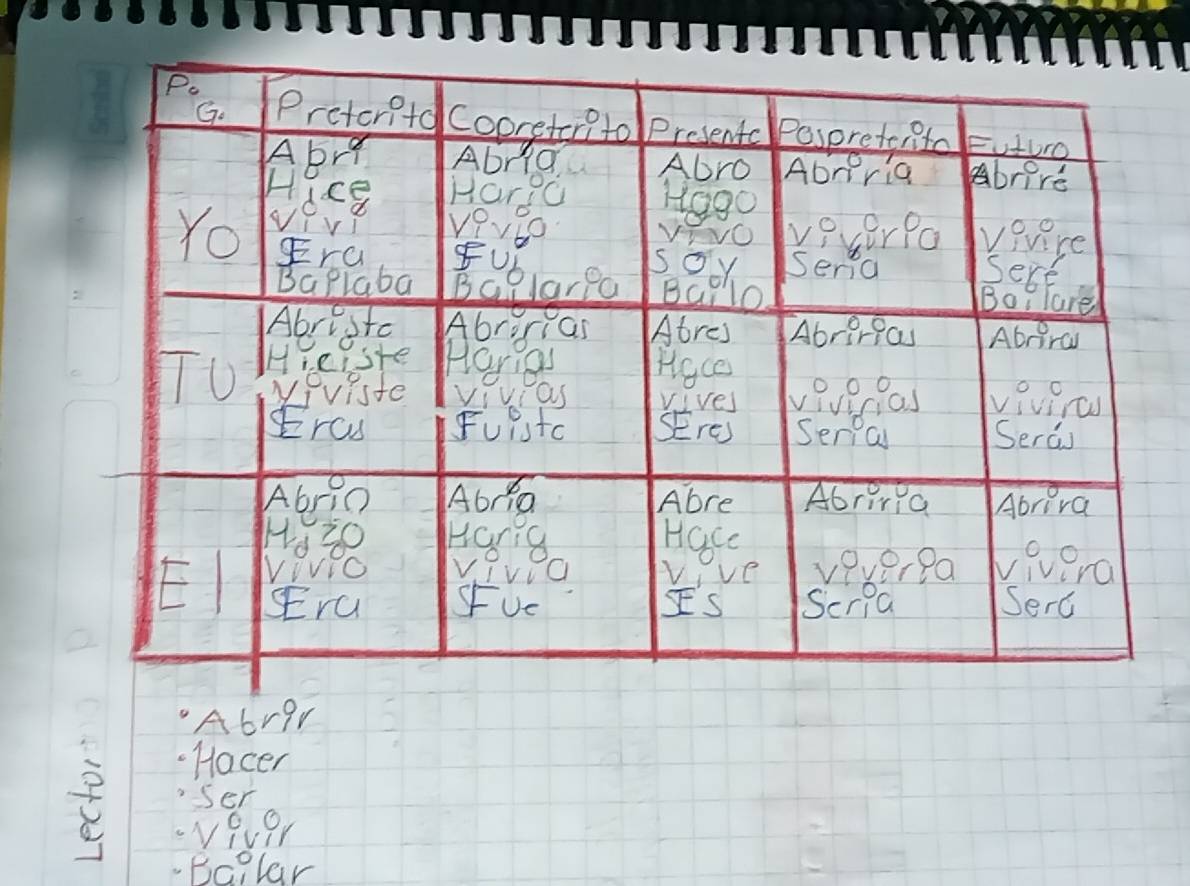 P. G. Preterito Copreterito Presente Pospreterito Futuro
Abri Abria Abro Abriria Abriré
Hice Haria Hago
Yo vivi vivia vivo viviria vivire
Era Fui soy Seria Seré
Bailaba Bailaria Bailo Bailare
Abriste Abririas Abres Abririas Abriras
Hiciste Harias Haces
TU viviste vivias vives vivirias viviras
Eras Fuiste Eres Serias Serás
Abrio Abria Abre Abriria Abrira
Hizo Haria Hace
El vivio vivia vive viviria vivira
Era Fue Es Seria Será
• Abrir
• Hacer
• Ser
• vivir
• Bailar